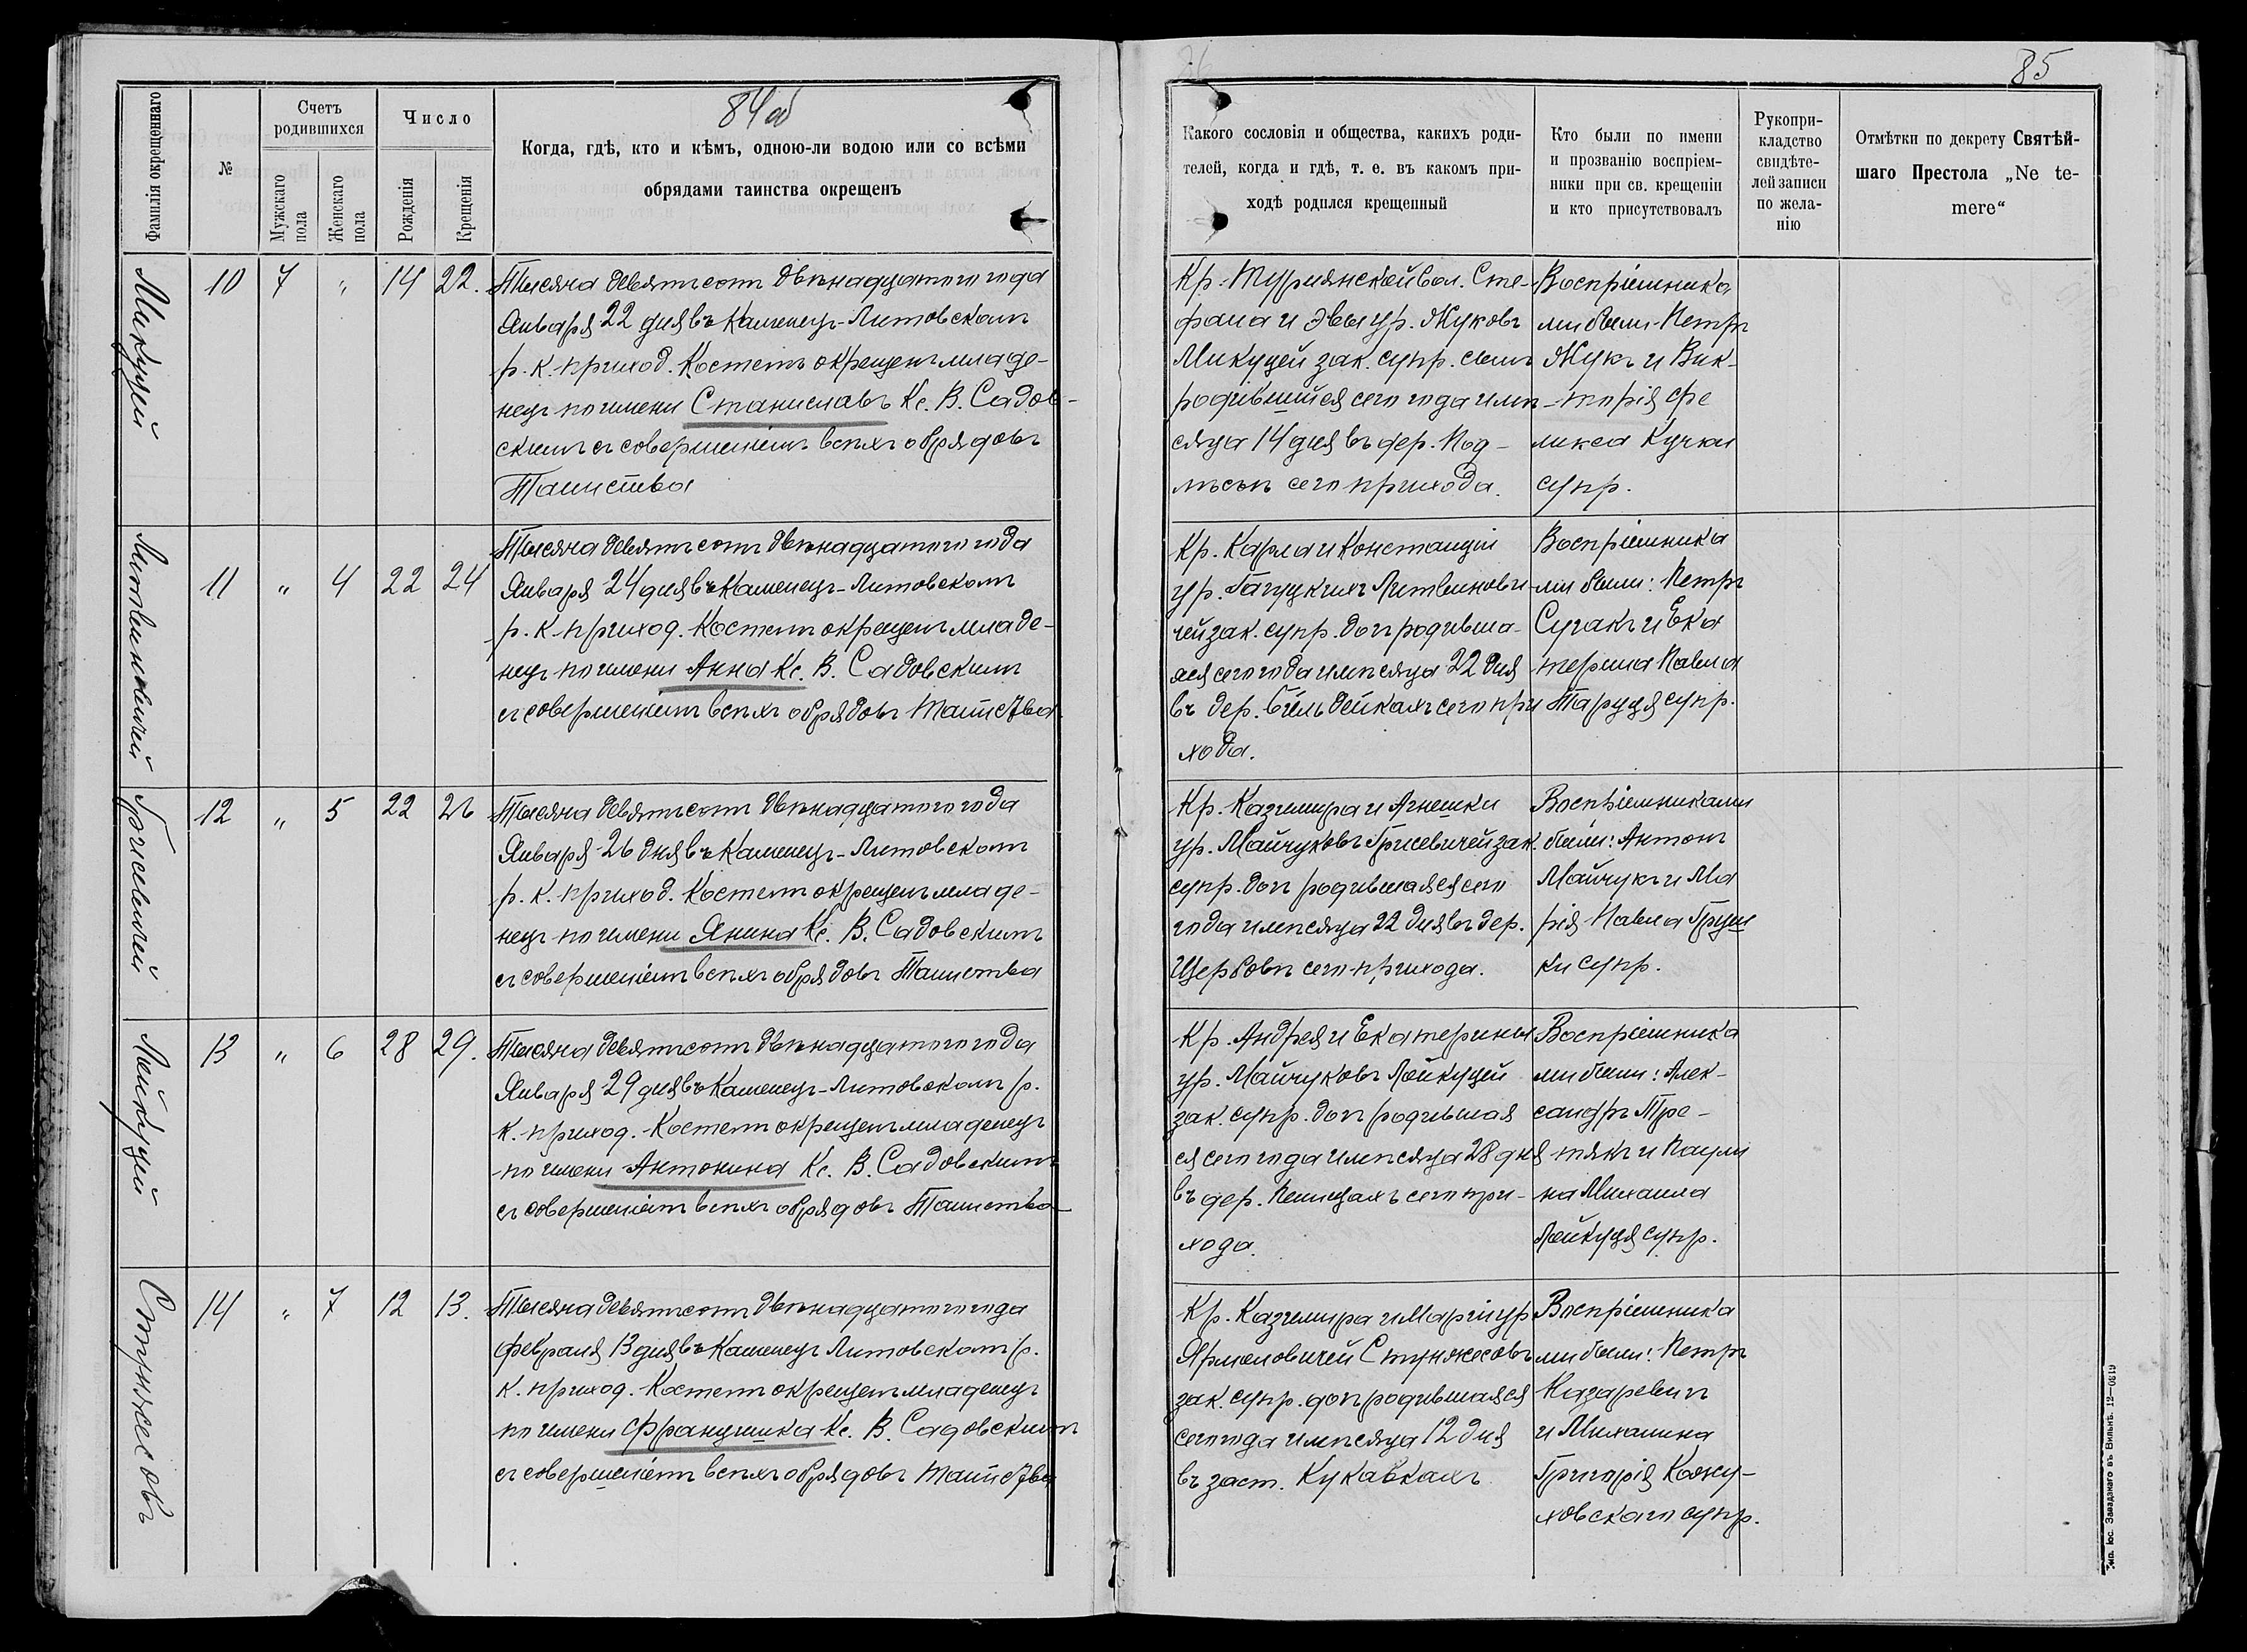 84об
Фамилія окрещеннаго
№
Счетъ родившихся
Мужскаго пола
Женскаго пола
Число
Рожденія
Крещенія
Когда, гдѣ, кто и кѣмъ, одною-ли водою или со всѣми
обрядами таинства окрещенъ
Микуцей
10 7 „ 14 22.
Тысяча девятьсотъ двѣнадцатого года
Января 22 дня въ Каменецъ-Литовскомъ
р. к. приход. Костелѣ окрещенъ младе-
нецъ по имени Станиславъ Кс. В. Садов-
скимъ съ совершеніемъ всѣхъ обрядовъ
Таинства
Литвиновичей
11 „ 4 22 24
Тысяча девятьсотъ двѣнадцатого года
Января 24 дня въ Каменецъ-Литовскомъ
р. к. приход. Костелѣ окрещенъ младе-
нецъ по имени Анна Кс. В. Садовскимъ
съ совершеніемъ всѣхъ обрядовъ Таинства
Грисевичей
12 „ 5 22 26
Тысяча девятьсотъ двѣнадцатого года
Января 26 дня въ Каменецъ-Литовскомъ
р. к. приход. Костелѣ окрещенъ младе-
нецъ по имени Янина Кс. В. Садовскимъ
съ совершеніемъ всѣхъ обрядовъ Таинства
Лойкуцей
13 „ 6 28 29.
Тысяча девятьсотъ двѣнадцатого года
Января 29 дня въ Каменецъ-Литовскомъ р.
к. приход. Костелѣ окрещенъ младенецъ
по имени Антонина Кс. В. Садовскимъ
съ совершеніемъ всѣхъ обрядовъ Таинства
Стунжесовъ
14 „ 7 12 13.
Тысяча девятьсотъ двѣнадцатого года
Февраля 13 дня въ Каменецъ Литовскомъ р.
к. приход. Костелѣ окрещенъ младенецъ
по имени Францишка Кс. В. Садовскимъ
съ совершеніемъ всѣхъ обрядовъ Таинства
85
Какого сословія и общества, какихъ роди-
телей, когда и гдѣ, т. е. въ какомъ при-
ходѣ родился крещенный
Кто были по имени
и прозванію воспріем-
ники при св. крещеніи
и кто присутствовалъ
Рукопри-
кладство
свидѣте-
лей записи
по жела-
нію
Отмѣтки по декрету Святѣй-
шаго Престола „Ne te-
mere“
Кр. Турнянской вол. Сте-
фана и Эвы ур. Жуковъ
Микуцей зак. супр. сынъ
родившійся сего года и мѣ-
сяца 14 дня въ дер. Под-
лѣсьѣ сего прихода.
Воспріемника
ми были Петръ
Жукъ и Вик-
торія Фе
ликса Кучки
супр.
Кр. Карла и Констанціи
ур. Гацуцкихъ Литвинови-
чей зак. супр. дочь родивша-
яся сего года и мѣсяца 22 дня
въ дер. Бѣльдейкахъ сего при
хода.
Воспріемника
ми были: Петръ
Сугакъ и Ека
терина Павла
Таруця супр.
Кр. Казимира и Агнешки
ур. Майчуковъ Грисевичей зак.
супр. дочь родившаяся сего
года и мѣсяца 22 дня въ дер.
Щербовѣ сего прихода.
Воспріемниками
были: Антонъ
Майчукъ и Ма
рія Павла Груш
ки супр.
Кр. Андрея и Екатерины
ур. Майчуковъ Лойкуцей
зак. супр. дочь родившая
ся сего года и мѣсяца 28 дня
въ дер. Пешцахъ сего при-
хода.
Воспріемника
ми были: Алек-
сандръ Тре-
тякъ и Паули
на Михаила
Лойкуця супр.
Кр. Казимира и Маріи ур
Ярмоловичей Стунжесовъ
зак. супр. дочь родившаяся
сего года и мѣсяца 12 дня
въ заст. Кукавкахъ
Воспріемника
ми были: Петръ
Назаревичъ
и Михалина
Григорія Кожу-
ховскаго супр.
Тип. Іос. Завадзкаго въ Вильнѣ. 12—0619